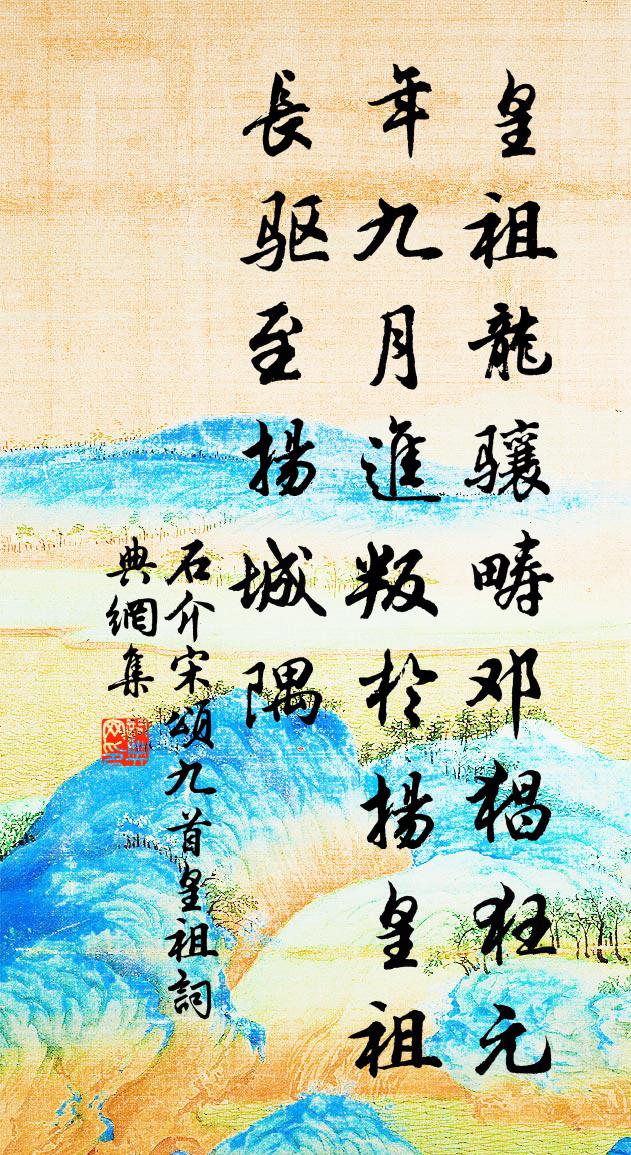 皇祖龍驤畴邓猖狂元
年九月進叛於揚皇祖
長驱至揚城隅
石介宋頌九首皇祖詞
典網集